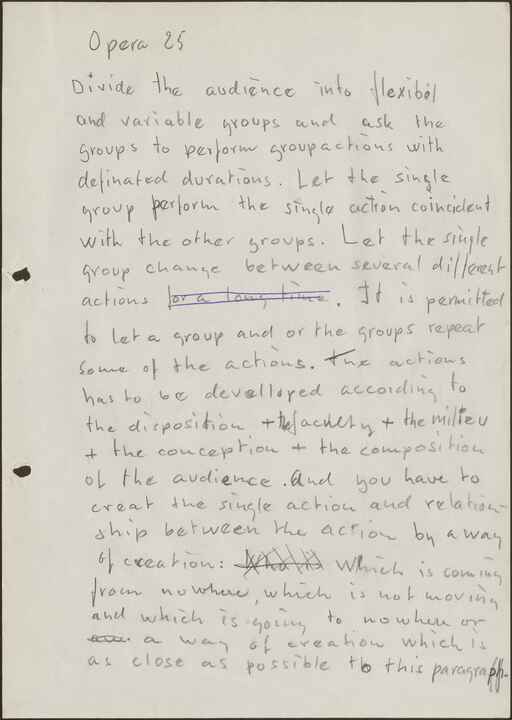 Opera 25
Divide the audience into flexibel
and variable groups and ask the
groups to perform groupactions with
definated durations. Let the single
group perform the single action coincident
with the other groups. Let the single
group change between several different
actions for a long time. It is permitted
to let a group and or the groups repeat
some of the actions. The actions
has to be develloped according to
the disposition + the faculty + the milieu
+ the conception + the composition
of the audience. And you have to
creat the single action and relation-
ship between the action by a way
of creation: Which is coming
from nowhere, which is not moving
and which is going to nowhere or
a way of creation which is
as close as possible to this paragraph.